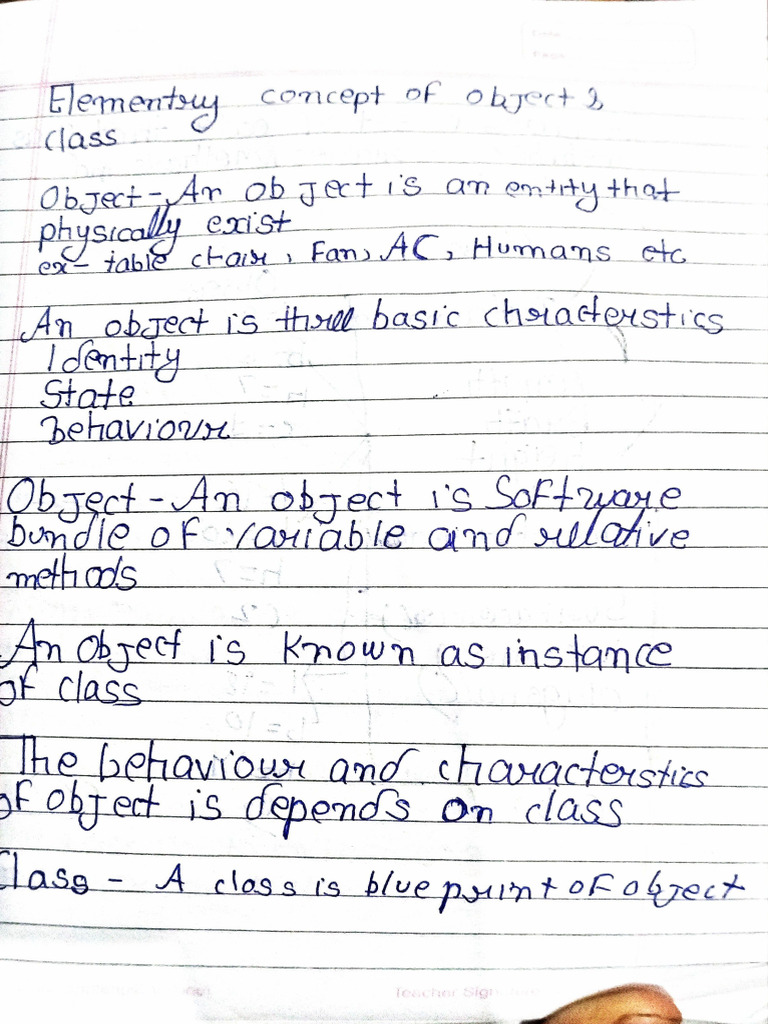 Elementry concept of object &
class
Object - An object is an entity that
physically exist
ex- table chair, Fan, AC, Humans etc
An object is three basic chriacterstics
Identity
State
Behaviour
Object - An object is Software
bundle of variable and relative
methods
An Object is known as instance
of class
The behaviour and characterstics
of object is depends on class
Class - A class is blue print of object
Teacher Sign